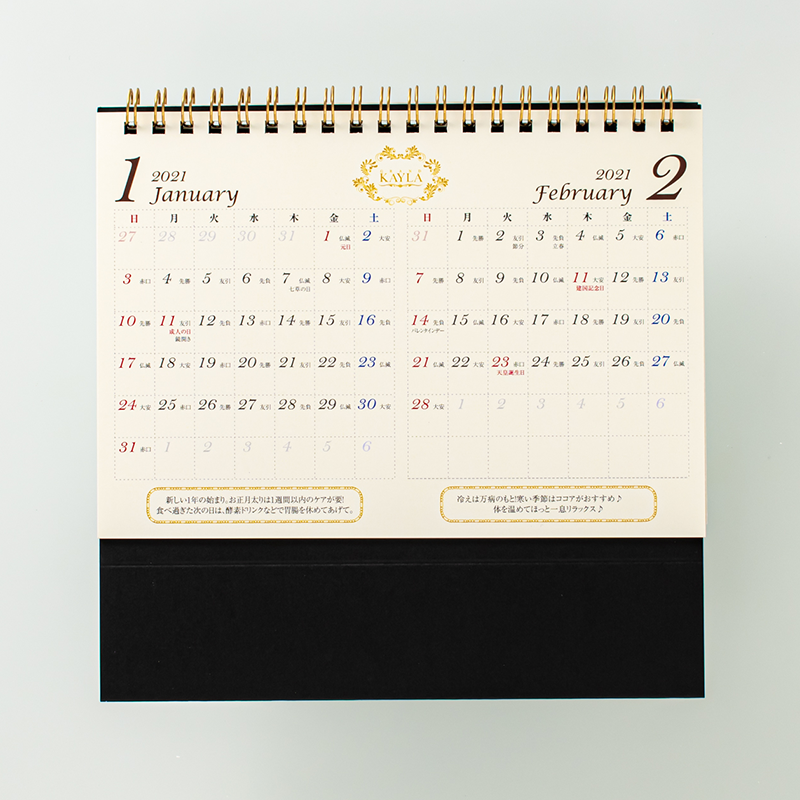 1 2021 January
日 月 火 水 木 金 土
27 28 29 30 31 1 仏滅 2 大安
元日
3 赤口 4 先勝 5 友引 6 先負 7 仏滅 8 大安 9 赤口
七草の日
10 先勝 11 友引 12 先負 13 赤口 14 先勝 15 友引 16 先負
成人の日
鏡開き
17 仏滅 18 大安 19 赤口 20 先勝 21 友引 22 先負 23 仏滅
24 大安 25 赤口 26 先勝 27 友引 28 先負 29 仏滅 30 大安
31 赤口 1 2 3 4 5 6
新しい1年の始まり。お正月太りは1週間以内のケアが要!
食べ過ぎた次の日は、酵素ドリンクなどで胃腸を休めてあげて。
KAYLA
2021 February 2
日 月 火 水 木 金 土
31 1 先勝 2 友引 3 先負 4 仏滅 5 大安 6 赤口
節分 立春
7 先勝 8 友引 9 先負 10 仏滅 11 大安 12 先勝 13 友引
建国記念日
14 先負 15 仏滅 16 大安 17 赤口 18 先勝 19 友引 20 先負
バレンタインデー
21 仏滅 22 大安 23 赤口 24 先勝 25 友引 26 先負 27 仏滅
天皇誕生日
28 大安 1 2 3 4 5 6
冷えは万病のもと!寒い季節はココアがおすすめ♪
体を温めてほっと一息リラックス♪